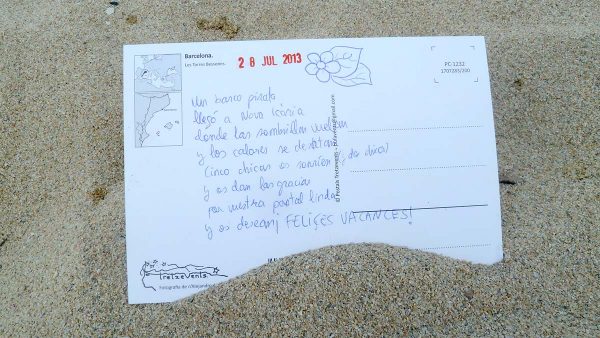 Barcelona.
Les Torres Bessones.
28 JUL 2013
PC 1232
1707283/200
Un barco pirata
llegó a Nova Icària
donde las sombrillas vuelan
y los calores se desatan
Cinco chicas os sonríen (dos chicas)
y os dan las gracias
por vuestra postal linda
y os desean ¡FELIÇES VACANCES!
© Postals Tretzevents
tretzevents
Fotografia de n'Alejandro